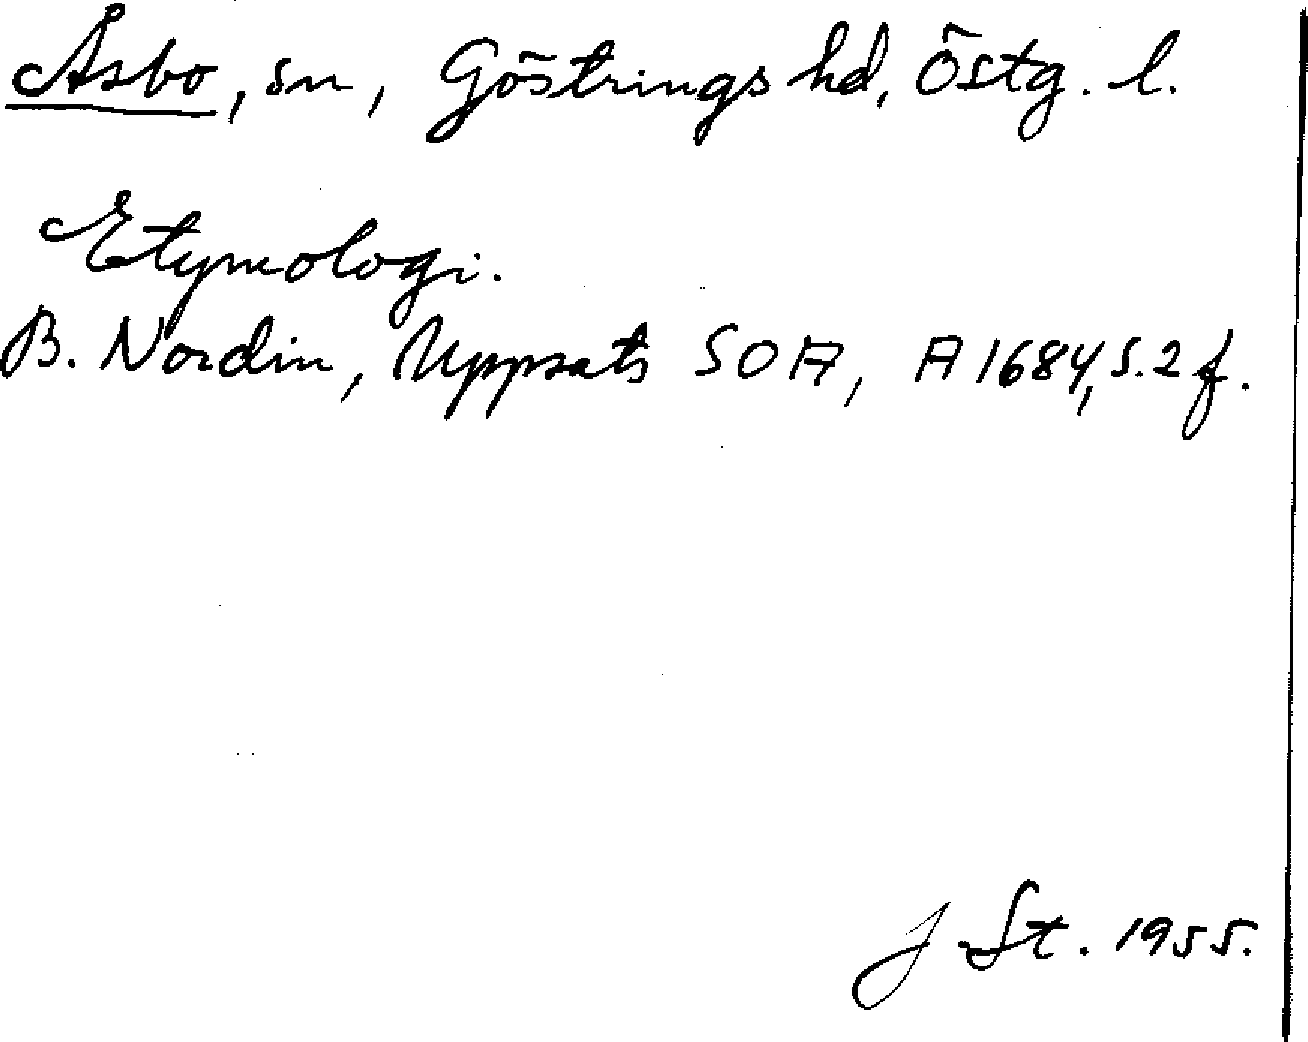 Åsbo, sn, Göstrings hd, Östg. l.
Etymologi.
B. Nordin, Uppsats SOA, A 1684, s. 2 f.
J St. 1955.